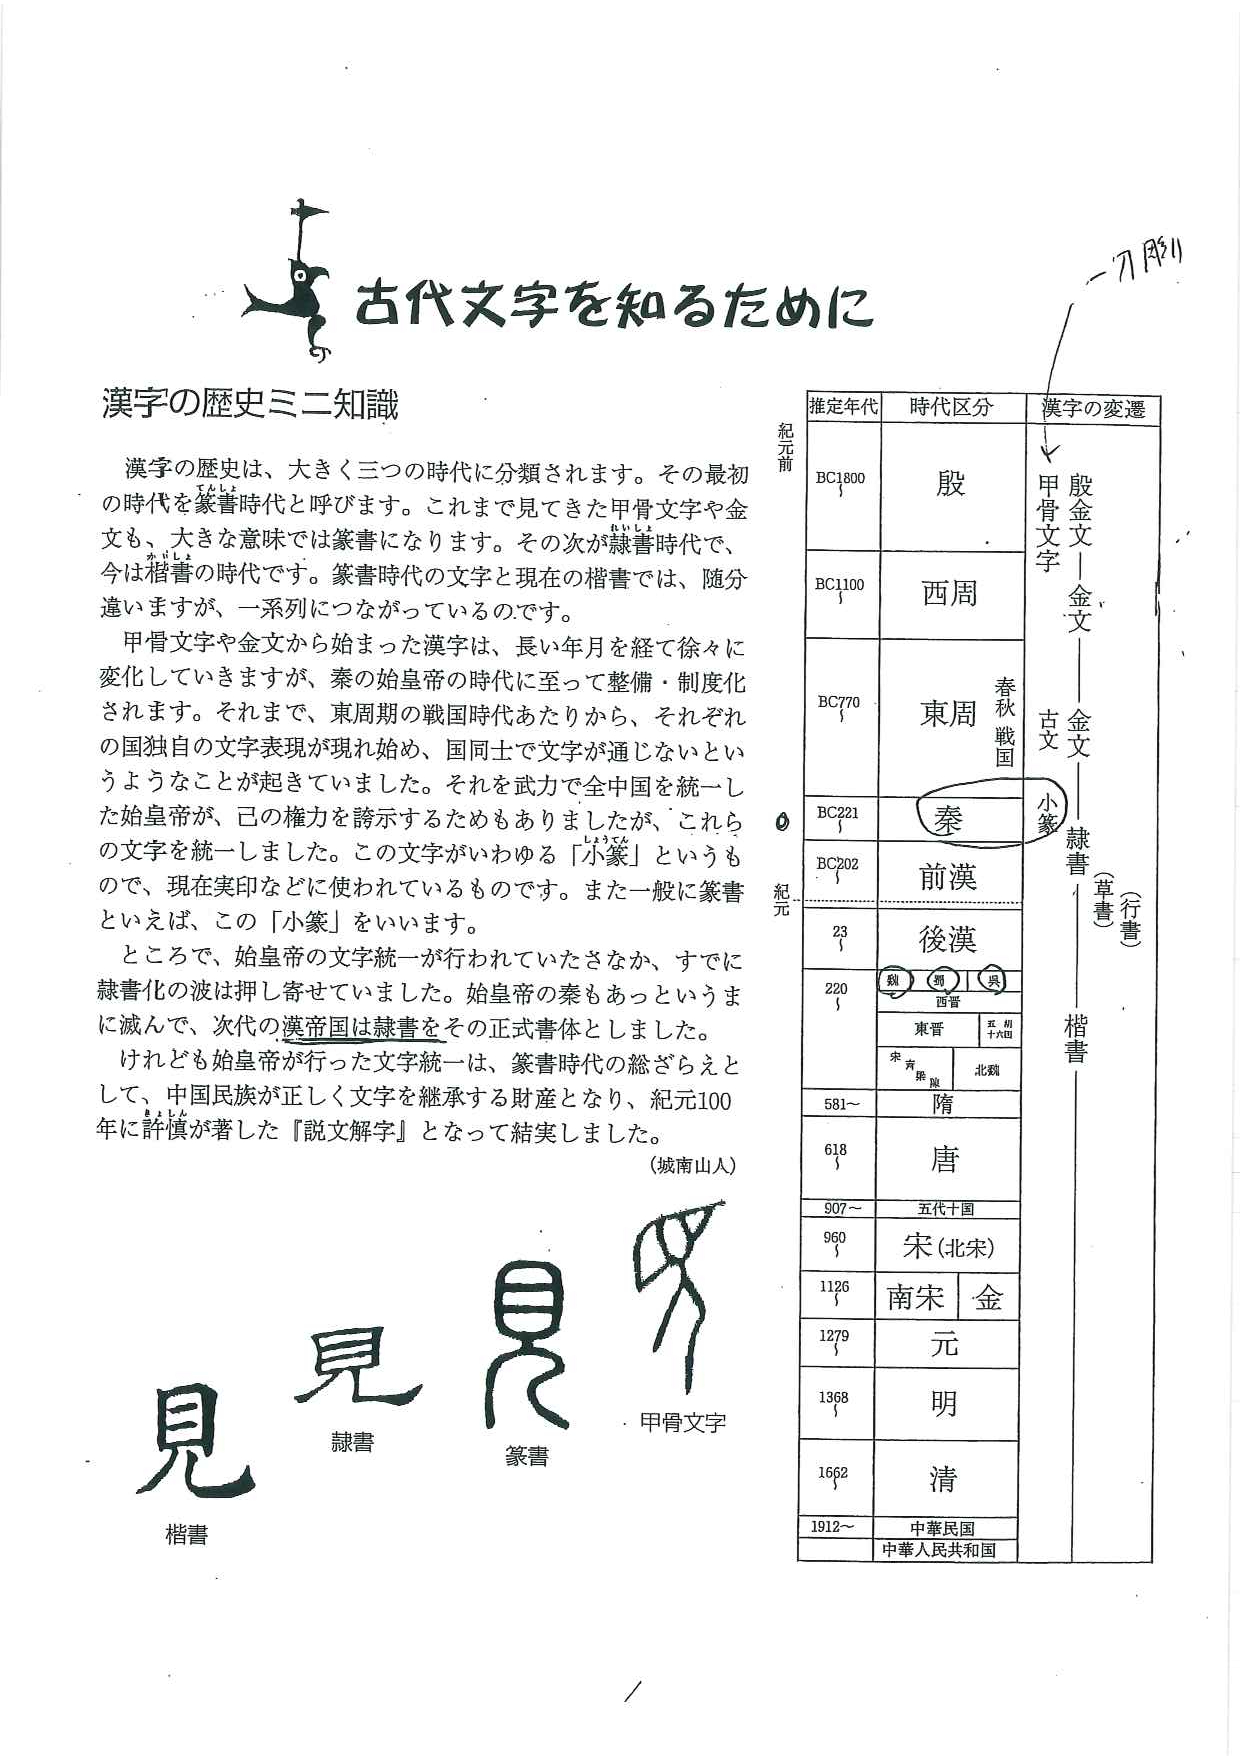 一刀彫
古代文字を知るために
漢字の歴史ミニ知識
漢字の歴史は、大きく三つの時代に分類されます。その最初
の時代を篆書時代と呼びます。これまで見てきた甲骨文字や金
文も、大きな意味では篆書になります。その次が隷書時代で、
今は楷書の時代です。篆書時代の文字と現在の楷書では、随分
違いますが、一系列につながっているのです。
甲骨文字や金文から始まった漢字は、長い年月を経て徐々に
変化していきますが、秦の始皇帝の時代に至って整備・制度化
されます。それまで、東周期の戦国時代あたりから、それぞれ
の国独自の文字表現が現れ始め、国同士で文字が通じないとい
うようなことが起きていました。それを武力で全中国を統一し
た始皇帝が、己の権力を誇示するためもありましたが、これら
の文字を統一しました。この文字がいわゆる「小篆」というも
ので、現在実印などに使われているものです。また一般に篆書
といえば、この「小篆」をいいます。
ところで、始皇帝の文字統一が行われていたさなか、すでに
隷書化の波は押し寄せていました。始皇帝の秦もあっというま
に滅んで、次代の漢帝国は隷書をその正式書体としました。
けれども始皇帝が行った文字統一は、篆書時代の総ざらえと
して、中国民族が正しく文字を継承する財産となり、紀元100
年に許慎が著した『説文解字』となって結実しました。
（城南山人）
てんしょ
れいしょ
かいしょ
しょうてん
きょしん
見
楷書
見
隷書
見
篆書
甲骨文字
推定年代 時代区分 漢字の変遷
紀元前
BC1800〜 殷
BC1100〜 西周
BC770〜 東周 春秋 戦国
BC221〜 秦
BC202〜 前漢
紀元
23〜 後漢
220〜 魏 蜀 呉
西晋
東晋 五胡十六国
宋 斉 梁 陳 北魏
581〜 隋
618〜 唐
907〜 五代十国
960〜 宋（北宋）
1126〜 南宋 金
1279〜 元
1368〜 明
1662〜 清
1912〜 中華民国
中華人民共和国
殷金文―金文―金文―隷書―楷書
甲骨文字
古文
小篆
（草書）
（行書）
1